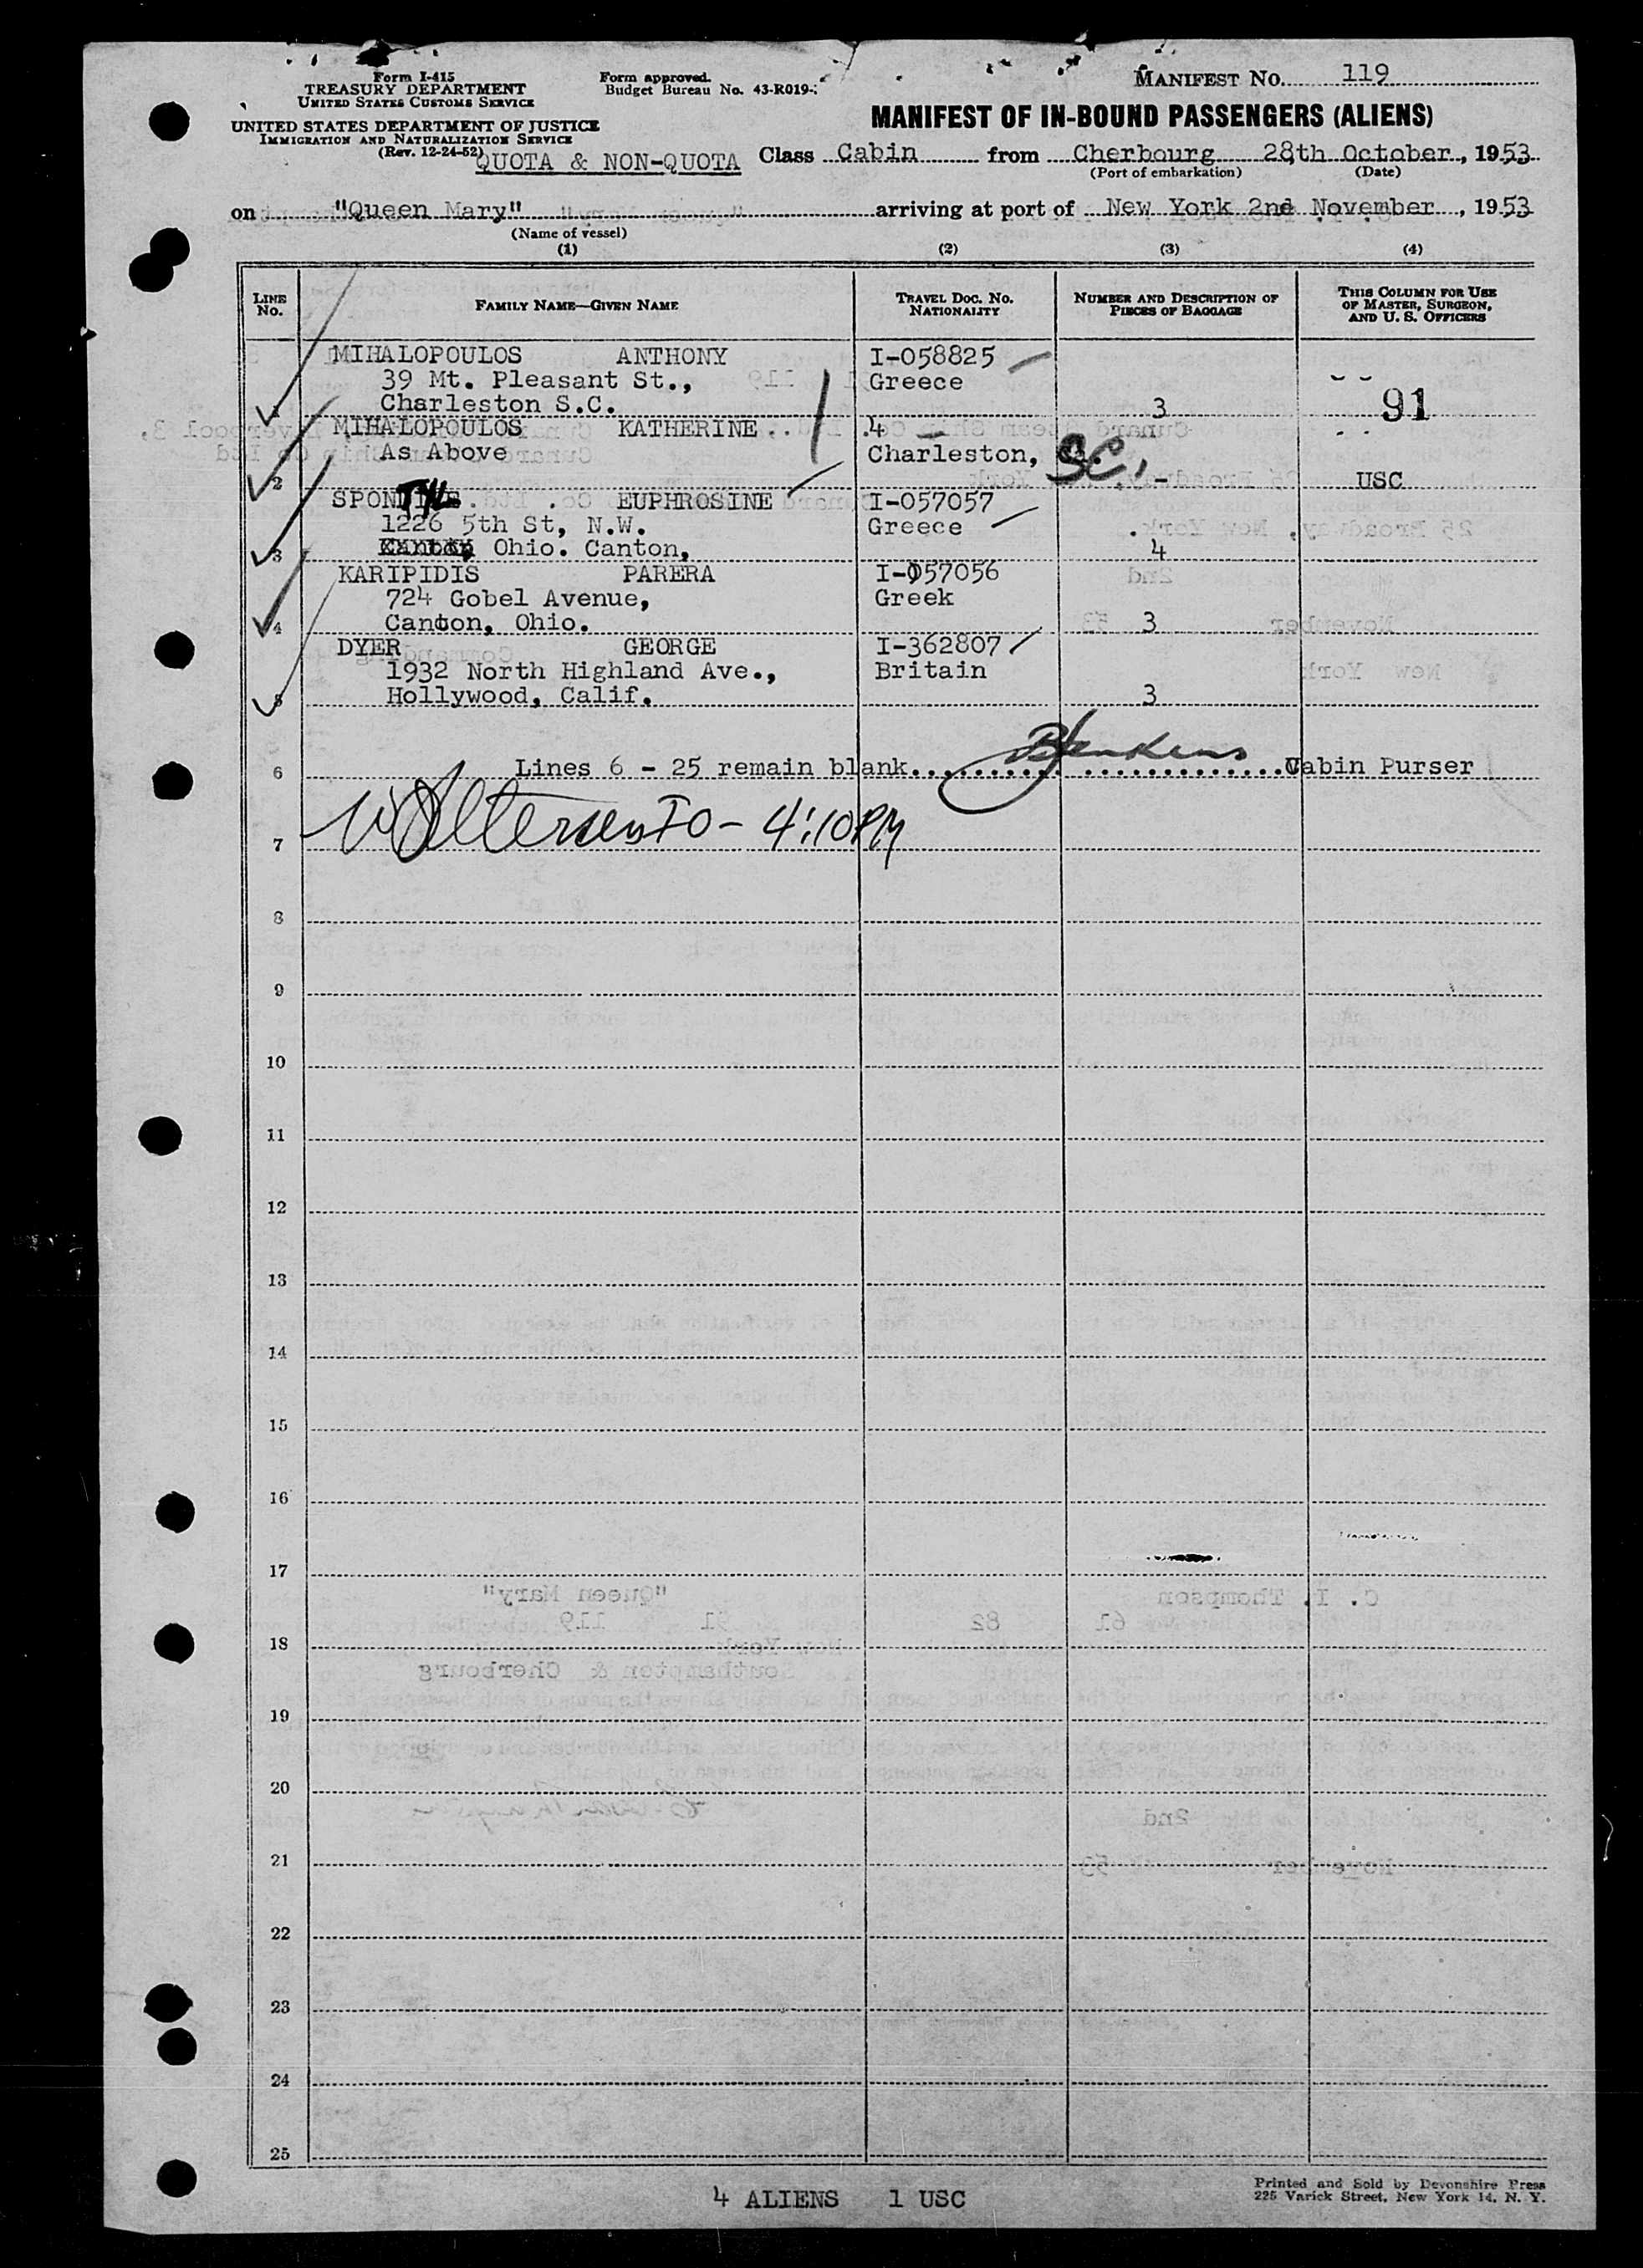 Form I-415
TREASURY DEPARTMENT
UNITED STATES CUSTOMS SERVICE
UNITED STATES DEPARTMENT OF JUSTICE
IMMIGRATION AND NATURALIZATION SERVICE
(Rev. 12-24-52)
Form approved.
Budget Bureau No. 43-R019-
MANIFEST No. 119
MANIFEST OF IN-BOUND PASSENGERS (ALIENS)
QUOTA & NON-QUOTA Class Cabin from Cherbourg 28th October, 1953
(Port of embarkation) (Date)
on "Queen Mary" arriving at port of New York 2nd November, 1953
(Name of vessel)
(1) (2) (3) (4)
LINE No. FAMILY NAME—GIVEN NAME TRAVEL DOC. NO. NATIONALITY NUMBER AND DESCRIPTION OF PIECES OF BAGGAGE THIS COLUMN FOR USE OF MASTER, SURGEON, AND U. S. OFFICERS
MIHALOPOULOS ANTHONY I-058825
39 Mt. Pleasant St., Greece
1 Charleston S.C. 3 91
MIHALOPOULOS KATHERINE 4
As Above Charleston, SC.
2 - USC
EUPHROSINE I-057057
1226 5th St, N.W. Greece
3 Ohio. Canton, 4
KARIPIDIS PARERA I-057056
724 Gobel Avenue, Greek
4 Canton, Ohio. 3
DYER GEORGE I-362807
1932 North Highland Ave., Britain
5 Hollywood, Calif. 3
6 Lines 6 - 25 remain blank. Cabin Purser
7 IO - 4:10 PM
8
9
10
11
12
13
14
15
16
17
18
19
20
21
22
23
24
25
4 ALIENS 1 USC
Printed and Sold by Devonshire Press
225 Varick Street, New York 14, N. Y.